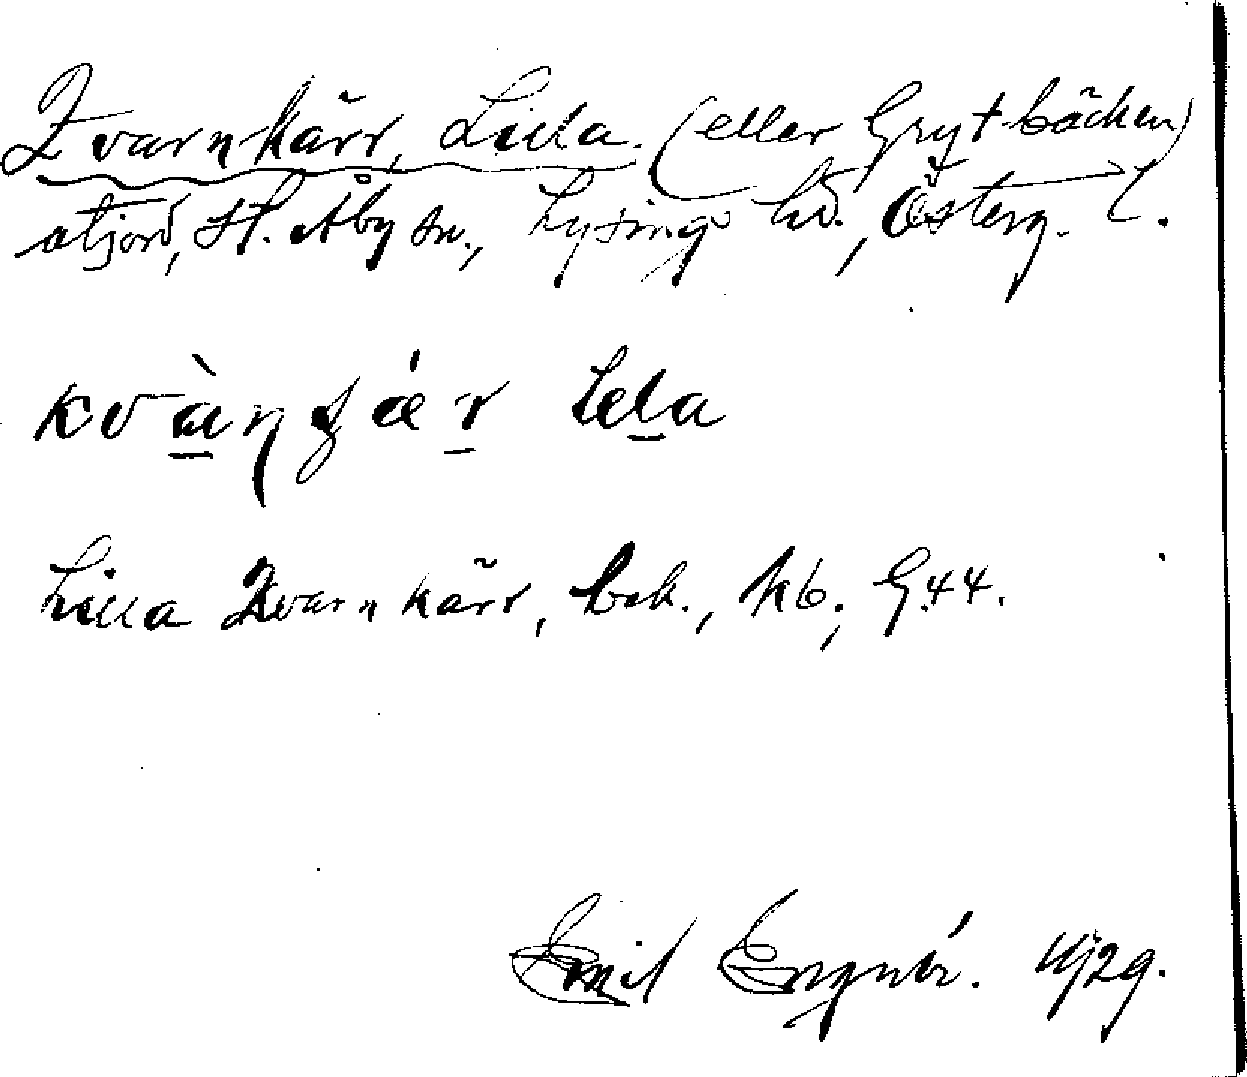 Kvarnkärr, Lilla (eller Grytbäcken)
atjord, St. Åby sn., Lysings hd., Österg. l.
kvànʒǽr lela
Lilla Kvarnkärr, bek., kb., G.44.
Emil Engnér. 1929.